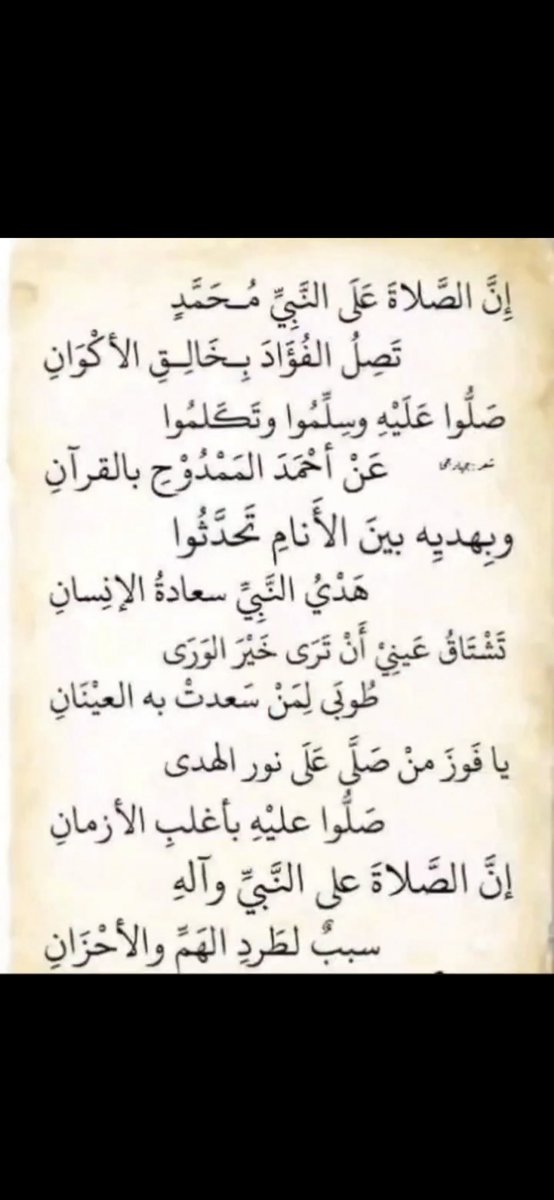 إِنَّ الصَّلاةَ عَلَى النَّبِيِّ مُـحَمَّدٍ
تَصِلُ الفُؤَادَ بِـخَالِـقِ الأكْوَانِ
صَلُّوا عَلَيْهِ وسِلِّمُوا وتَكَلمُوا
عَنْ أحْمَدَ المَمْدُوْحِ بالقرآنِ
وبِهديِه بينَ الأَنامِ تَحدَّثُوا
هَدْيُ النَّبِيِّ سعادةُ الإنِسانِ
تَشْتَاقُ عَينِيْ أَنْ تَرَى خَيْرَ الوَرَى
طُوبَى لِمَنْ سَعدتْ به العيْنَانِ
يا فَوزَ منْ صَلَّى عَلَى نور الهدى
صَلُّوا عليْهِ بأغلبِ الأزمانِ
إنَّ الصَّلاةَ على النَّبيِّ وآلهِ
سببٌ لطَردِ الهَمِّ والأحْزَانِ